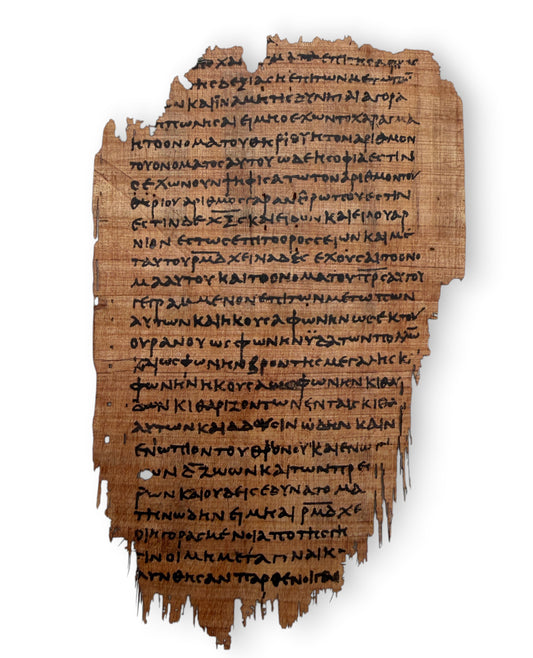 ΧΑΡΑΓΜΑ ΕΠΙ ΤΗϹ ΧΕΙΡΟϹ
ΗϹ ΔΕΞΙΑϹ Η ΕΠΙ ΤΩΝ ΜΕΤΩΠΩ
ΩΝ ΚΑΙ ΙΝΑ ΜΗ ΤΙϹ ΔΥΝΗΤΑΙ ΑΓΟΡΑ
Η ΠΩΛΗϹΑΙ ΕΙ ΜΗ Ο ΕΧΩΝ ΤΟ ΧΑΡΑΓΜΑ
Η ΤΟ ΟΝΟΜΑ ΤΟΥ ΘΗΡΙΟΥ Η ΤΟΝ ΑΡΙΘΜΟΝ
ΤΟΥ ΟΝΟΜΑΤΟϹ ΑΥΤΟΥ ΩΔΕ Η ϹΟΦΙΑ ΕϹΤΙΝ
Ο ΕΧΩΝ ΟΥΝ ΨΗΦΙϹΑΤΩ ΤΟΝ ΑΡΙΘΜΟΝ ΤΟΥ
ΘΗΡΙΟΥ ΑΡΙΘΜΟϹ ΓΑΡ ΑΝΘΡΩΠΟΥ ΕϹΤΙΝ
ΕϹΤΙΝ ΔΕ Χ̅Ξ̅Ϲ̅ ΚΑΙ ΕΙΔΟΝ ΚΑΙ ΕΙΔΟΥ ΑΡ
ΝΙΟΝ ΕϹΤΩϹ ΕΠΙ ΤΟ ΟΡΟϹ ϹΕΙΩΝ ΚΑΙ ΜΕ
ΤΑΥΤΟΥ Ρ̅Μ̅Δ̅ ΧΕΙΛΙΑΔΕϹ ΕΧΟΥϹΑΙ ΤΟ ΟΝΟ
ΜΑ ΑΥΤΟΥ ΚΑΙ ΤΟ ΟΝΟΜΑ ΤΟΥ Π̅Ρ̅Ϲ̅ ΑΥΤΟΥ
ΓΕΓΡΑΜΜΕΝΟΝ ΕΠΙ ΤΩΝ ΜΕΤΩΠΩΝ
ΑΥΤΩΝ ΚΑΙ ΗΚΟΥϹΑ ΦΩΝΗΝ ΩϹ ΕΚ ΤΟΥ
ΟΥΡΑΝΟΥ ΩϹ ΦΩΝΗΝ ΥΔΑΤΩΝ ΠΟΛΛΩ
ΚΑΙ ΩϹ ΦΩΝΗΝ ΒΡΟΝΤΗϹ ΜΕΓΑΛΗϹ Κ
ΦΩΝΗΝ ΗΚΟΥϹΑ ΩϹ ΦΩΝΗΝ ΚΙΘΑ
ΔΩΝ ΚΙΘΑΡΙΖΟΝΤΩΝ ΕΝ ΤΑΙϹ ΚΙΘΑ
ΑΥΤΩΝ ΚΑΙ ΑΔΟΥϹΙΝ ΩΔΗΝ ΚΑΙΝ
ΕΝΩΠΙΟΝ ΤΟΥ ΘΡΟΝΟΥ ΚΑΙ ΕΝΩΠ
ΩΝ Δ̅ ΖΩΩΝ ΚΑΙ ΤΩΝ ΠΡΕ
ΡΩΝ ΚΑΙ ΟΥΔΕΙϹ ΕΔΥΝΑΤΟ ΜΑ
ΤΗΝ ΩΔΗΝ ΕΙ ΜΗ ΑΙ Ρ̅Μ̅Δ̅ ΧΕ
ΟΙ ΗΓΟΡΑϹΜΕΝΟΙ ΑΠΟ ΤΗϹ ΓΗ
ΤΙΝ ΟΙ ΜΗ ΜΕΤΑ ΓΥΝΑΙΚ
ΛΥΝΘΗϹΑΝ ΠΑΡΘΕΝΟΙ